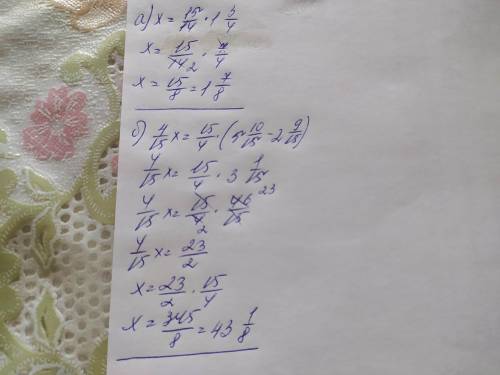 а) x = 15/14 · 1 3/4
x = 15/14 2 · 7/4
x = 15/8 = 1 7/8
б) 4/15 x = 15/4 · (5 10/15 - 2 9/15)
4/15 x = 15/4 · 3 1/15
4/15 x = 15/4 2 · 46/15 23
4/15 x = 23/2
x = 23/2 · 15/4
x = 345/8 = 43 1/8